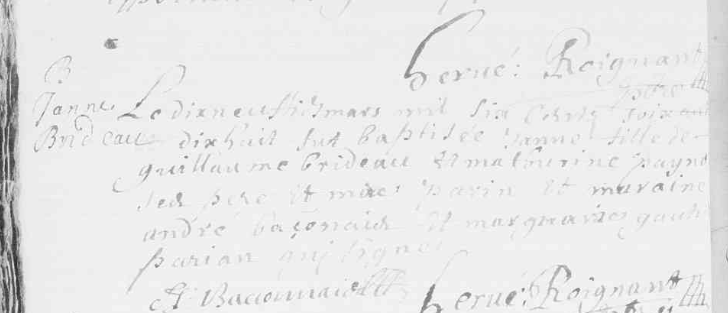 hervé: Roignant
pbre
B
Janne Le dixneuf mars mil six cents soixan
Brideau dixhuit fut baptisée Janne fille de
guillaume brideau Et mathurine payne
ses pere et mere parin Et maraine
andré baconais Et marguarite gaut
parian qui signe
A Bacconnais hervé: Roignant